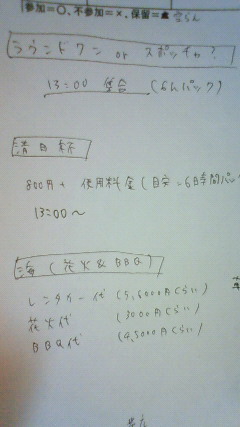 参加=○、不参加=×、保留=▲
ラウンドワン or スポッチャ?
13:00 集合 (6hパック)
800円+ 使用料金(目安→6時間パ
13:00〜
海(花火&BBQ)
レンタカー代 (5,6000円くらい)
花火代 (3000円くらい)
BBQ代 (4,5000円くらい)